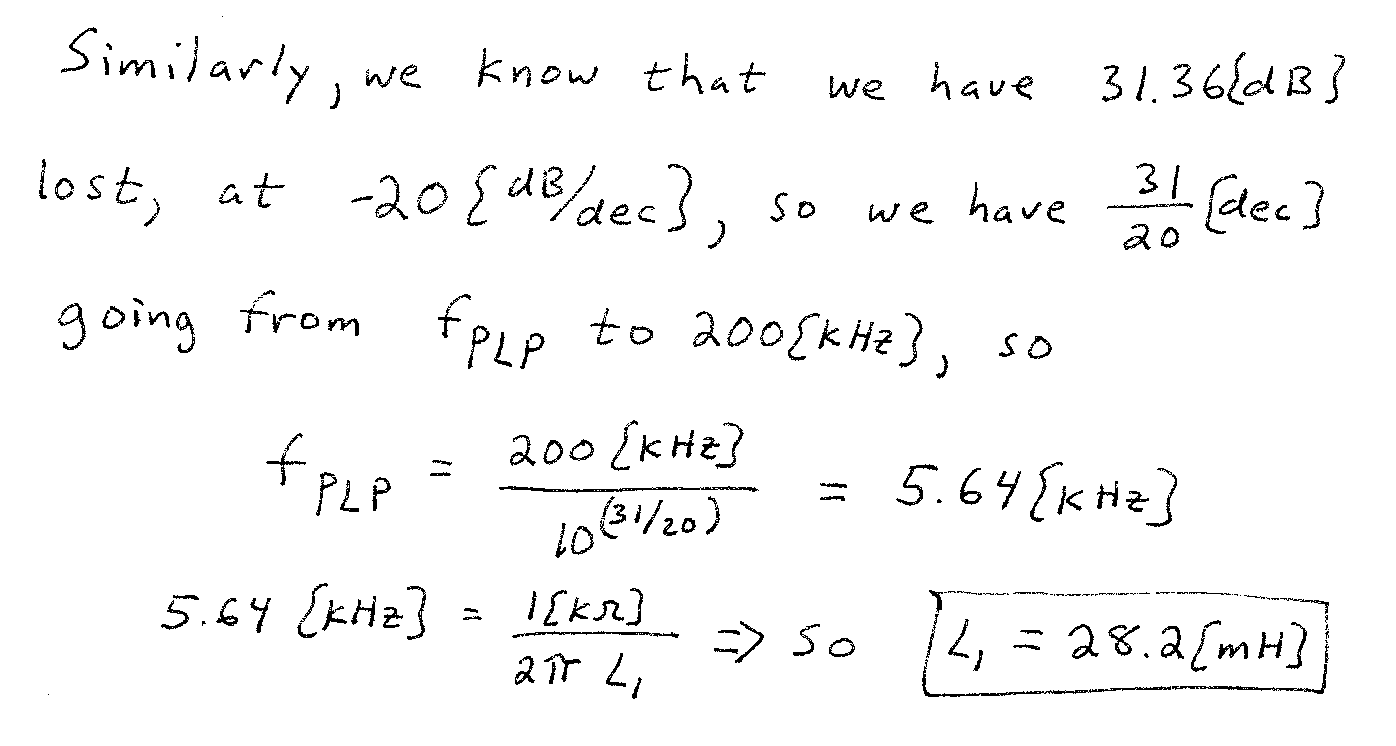 Similarly, we know that we have 31.36{dB}
lost, at -20 {dB/dec}, so we have 31/20 {dec}
going from f_PLP to 200{kHz}, so
f_PLP = 200 {kHz} / 10^(31/20) = 5.64{kHz}
5.64 {kHz} = 1{kΩ} / 2π L₁ => so L₁ = 28.2{mH}